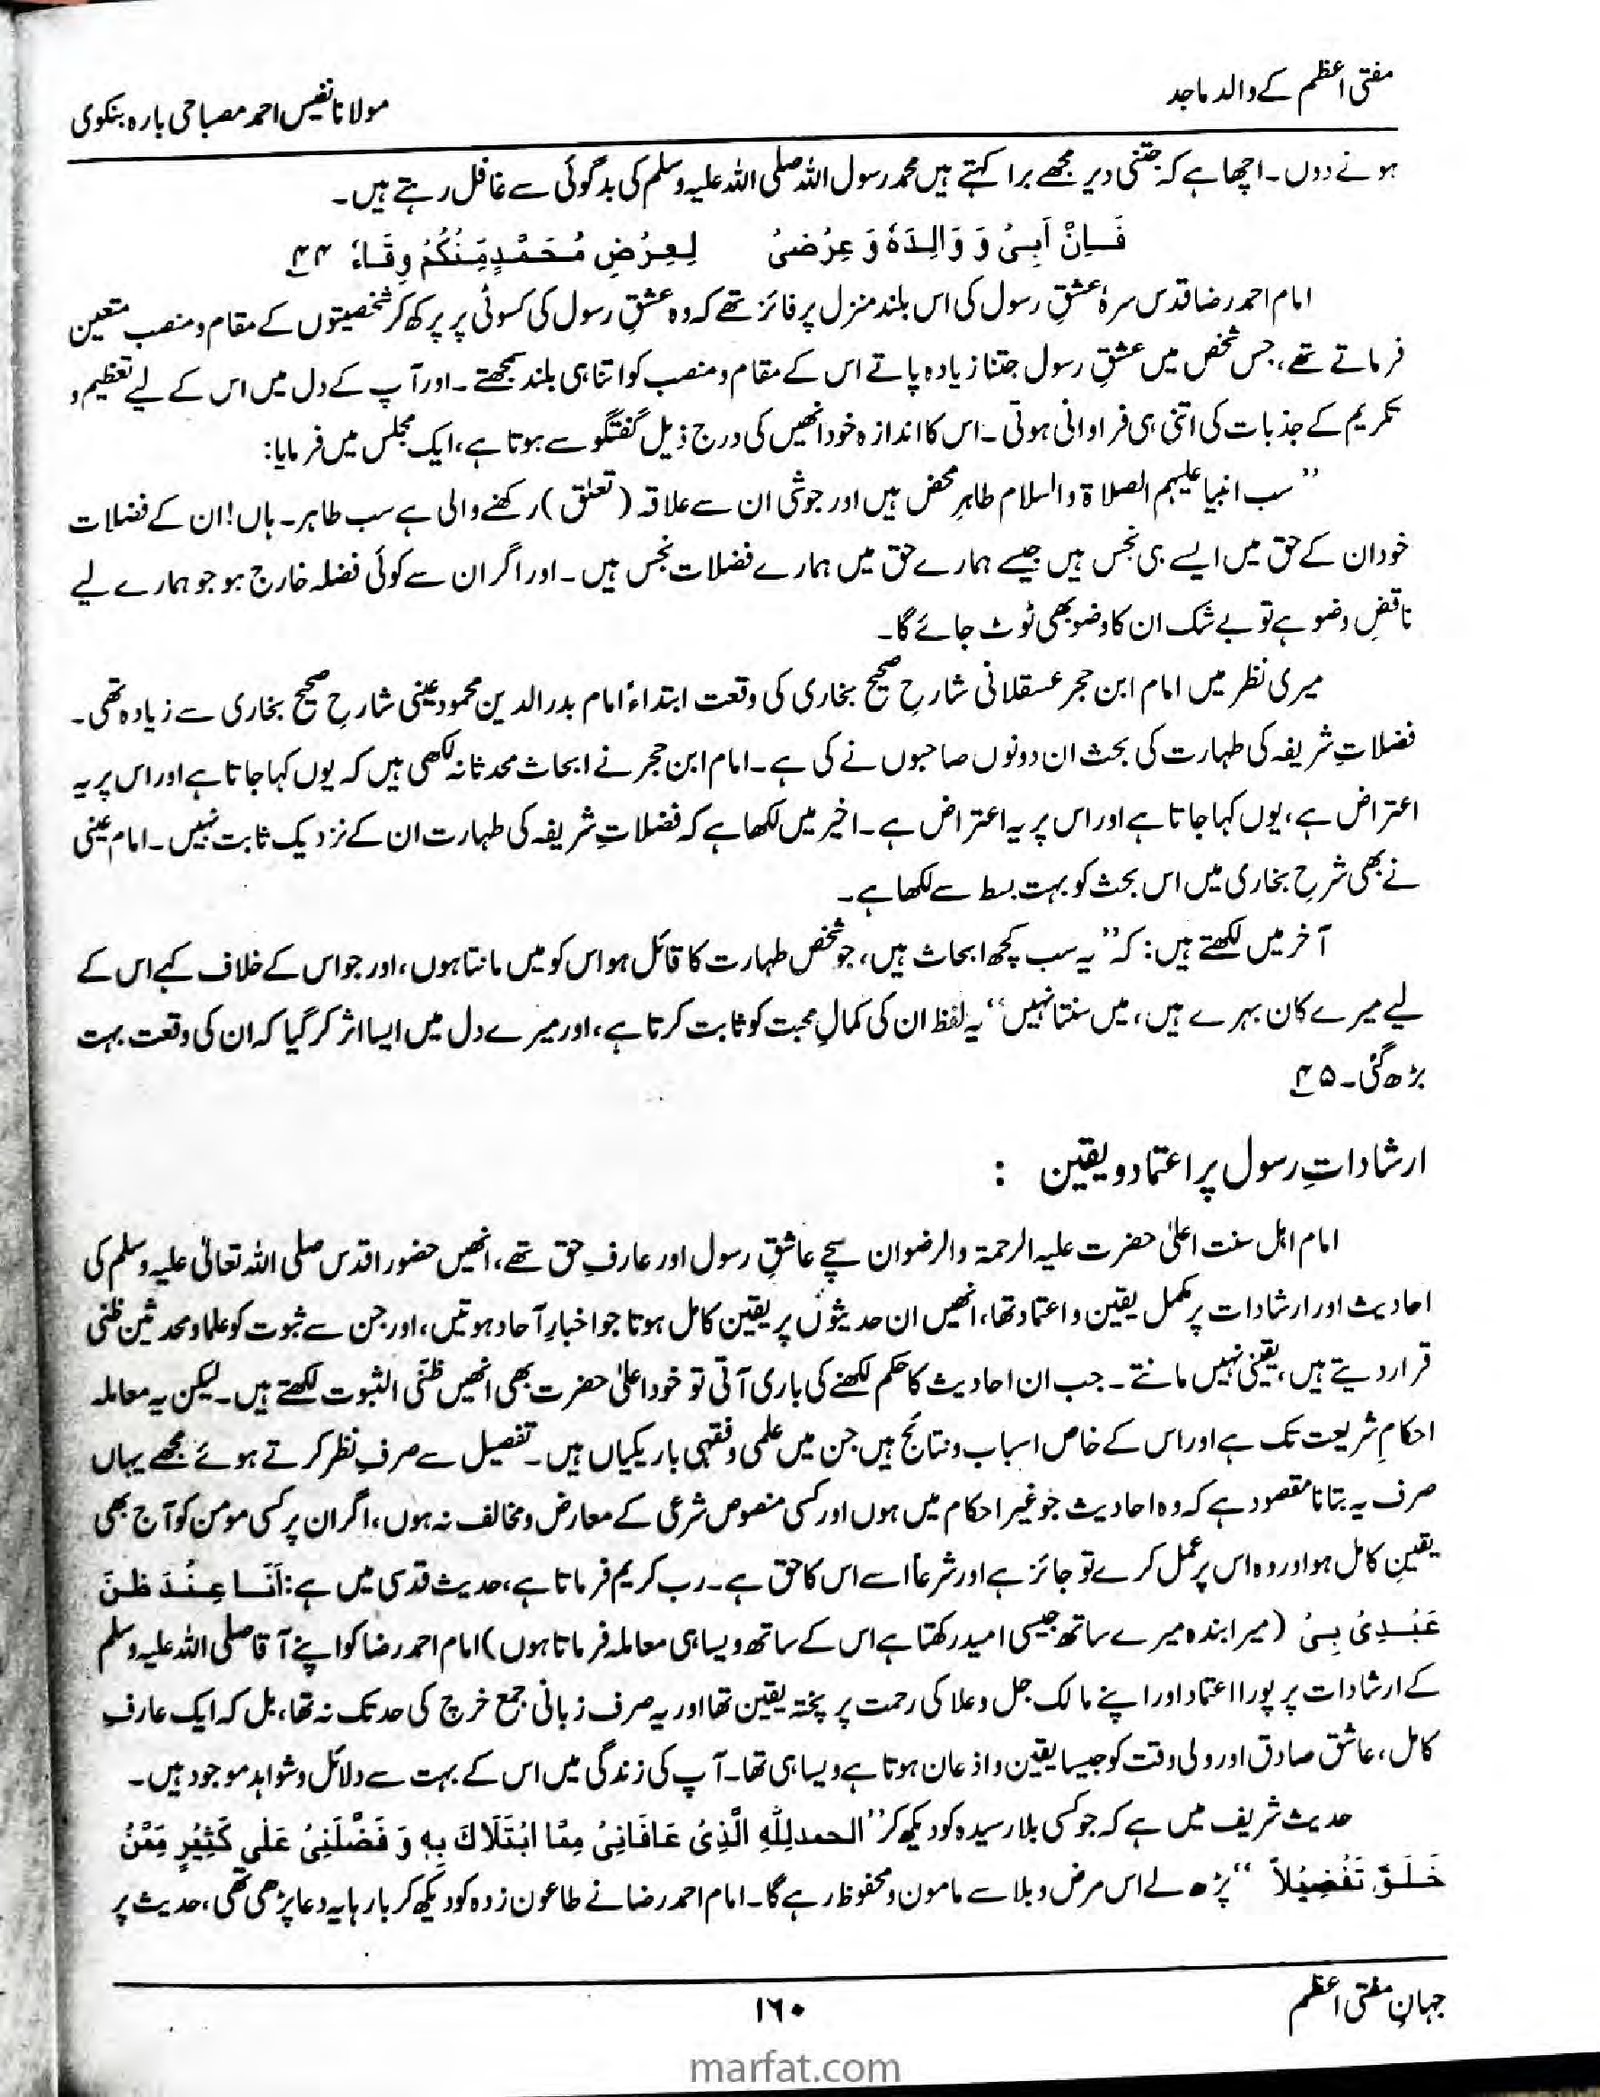 مفتی اعظم کے والد ماجد
مولانا نفیس احمد مصباحی بارہ بنکوی
ہونے دوں۔ اچھا ہے کہ جتنی دیر مجھے برا کہتے ہیں محمد رسول اللہ صلی اللہ علیہ وسلم کی بدگوئی سے غافل رہتے ہیں۔
فَاِنْ اَبِیْ وَ وَالِدَہٗ وَ عِرْضِیْ لِعِرْضِ مُحَمَّدٍ مِّنْکُمْ وِقَاءٗ ۴۴
امام احمد رضا قدس سرہٗ عشقِ رسول کی اس بلند منزل پر فائز تھے کہ وہ عشقِ رسول کی کسوٹی پر پرکھ کر شخصیتوں کے مقام و منصب متعین
فرماتے تھے، جس شخص میں عشقِ رسول جتنا زیادہ پاتے اس کے مقام و منصب کو اتنا ہی بلند سمجھتے۔ اور آپ کے دل میں اس کے لیے تعظیم و
تکریم کے جذبات کی اتنی ہی فراوانی ہوتی۔ اس کا اندازہ خود انھیں کی درج ذیل گفتگو سے ہوتا ہے، ایک مجلس میں فرمایا:
”سب انبیا علیہم الصلاۃ والسلام طاہرِ محض ہیں اور جو شی ان سے علاقہ (تعلق) رکھنے والی ہے سب طاہر۔ ہاں! ان کے فضلات
خود ان کے حق میں ایسے ہی نجس ہیں جیسے ہمارے حق میں ہمارے فضلات نجس ہیں۔ اور اگر ان سے کوئی فضلہ خارج ہو جو ہمارے لیے
ناقضِ وضو ہے تو بے شک ان کا وضو بھی ٹوٹ جائے گا۔
میری نظر میں امام ابن حجر عسقلانی شارحِ صحیح بخاری کی وقعت ابتداءً امام بدر الدین محمود عینی شارحِ صحیح بخاری سے زیادہ تھی۔
فضلاتِ شریفہ کی طہارت کی بحث ان دونوں صاحبوں نے کی ہے۔ امام ابن حجر نے ابحاث محدثانہ لکھی ہیں کہ یوں کہا جاتا ہے اور اس پر یہ
اعتراض ہے، یوں کہا جاتا ہے اور اس پر یہ اعتراض ہے۔ اخیر میں لکھا ہے کہ فضلاتِ شریفہ کی طہارت ان کے نزدیک ثابت نہیں۔ امام عینی
نے بھی شرحِ بخاری میں اس بحث کو بہت بسط سے لکھا ہے۔
آخر میں لکھتے ہیں: کہ ”یہ سب کچھ ابحاث ہیں، جو شخص طہارت کا قائل ہو اس کو میں مانتا ہوں، اور جو اس کے خلاف کہے اس کے
لیے میرے کان بہرے ہیں، میں سنتا نہیں“ یہ لفظ ان کی کمالِ محبت کو ثابت کرتا ہے، اور میرے دل میں ایسا اثر کر گیا کہ ان کی وقعت بہت
بڑھ گئی۔ ۴۵
ارشاداتِ رسول پر اعتماد و یقین :
امام اہل سنت اعلیٰ حضرت علیہ الرحمۃ والرضوان سچے عاشقِ رسول اور عارفِ حق تھے، انھیں حضور اقدس صلی اللہ تعالیٰ علیہ وسلم کی
احادیث اور ارشادات پر مکمل یقین و اعتماد تھا، انھیں ان حدیثوں پر یقین کامل ہوتا جو اخبارِ آحاد ہوتیں، اور جن سے ثبوت کو علما و محدثین ظنی
قرار دیتے ہیں، یقینی نہیں مانتے۔ جب ان احادیث کا حکم لکھنے کی باری آتی تو خود اعلیٰ حضرت بھی انھیں ظنّی الثبوت لکھتے ہیں۔ لیکن یہ معاملہ
احکامِ شریعت تک ہے اور اس کے خاص اسباب و نتائج ہیں جن میں علمی و فقہی باریکیاں ہیں۔ تفصیل سے صرفِ نظر کرتے ہوئے مجھے یہاں
صرف یہ بتانا مقصود ہے کہ وہ احادیث جو غیر احکام میں ہوں اور کسی منصوص شرعی کے معارض و مخالف نہ ہوں، اگر ان پر کسی مومن کو آج بھی
یقینِ کامل ہو اور وہ اس پر عمل کرے تو جائز ہے اور شرعاً اسے اس کا حق ہے۔ رب کریم فرماتا ہے، حدیث قدسی میں ہے: اَنَا عِنْدَ ظَنِّ
عَبْدِیْ بِیْ (میرا بندہ میرے ساتھ جیسی امید رکھتا ہے اس کے ساتھ ویسا ہی معاملہ فرماتا ہوں) امام احمد رضا کو اپنے آقا صلی اللہ علیہ وسلم
کے ارشادات پر پورا اعتماد اور اپنے مالک جل وعلا کی رحمت پر پختہ یقین تھا اور یہ صرف زبانی جمع خرچ کی حد تک نہ تھا، بل کہ ایک عارفِ
کامل، عاشق صادق اور ولی وقت کو جیسا یقین و اذعان ہوتا ہے ویسا ہی تھا۔ آپ کی زندگی میں اس کے بہت سے دلائل و شواہد موجود ہیں۔
حدیث شریف میں ہے کہ جو کسی بلا رسیدہ کو دیکھ کر ”الحمدلِلّٰہِ الَّذِیْ عَافَانِیْ مِمَّا ابْتَلَاکَ بِہٖ وَ فَضَّلَنِیْ عَلٰی کَثِیْرٍ مِّمَّنْ
خَلَقَ تَفْضِیْلاً“ پڑھ لے اس مرض و بلا سے مامون و محفوظ رہے گا۔ امام احمد رضا نے طاعون زدہ کو دیکھ کر بارہا یہ دعا پڑھی تھی، حدیث پر
جہانِ مفتی اعظم
۱۶۰
marfat.com